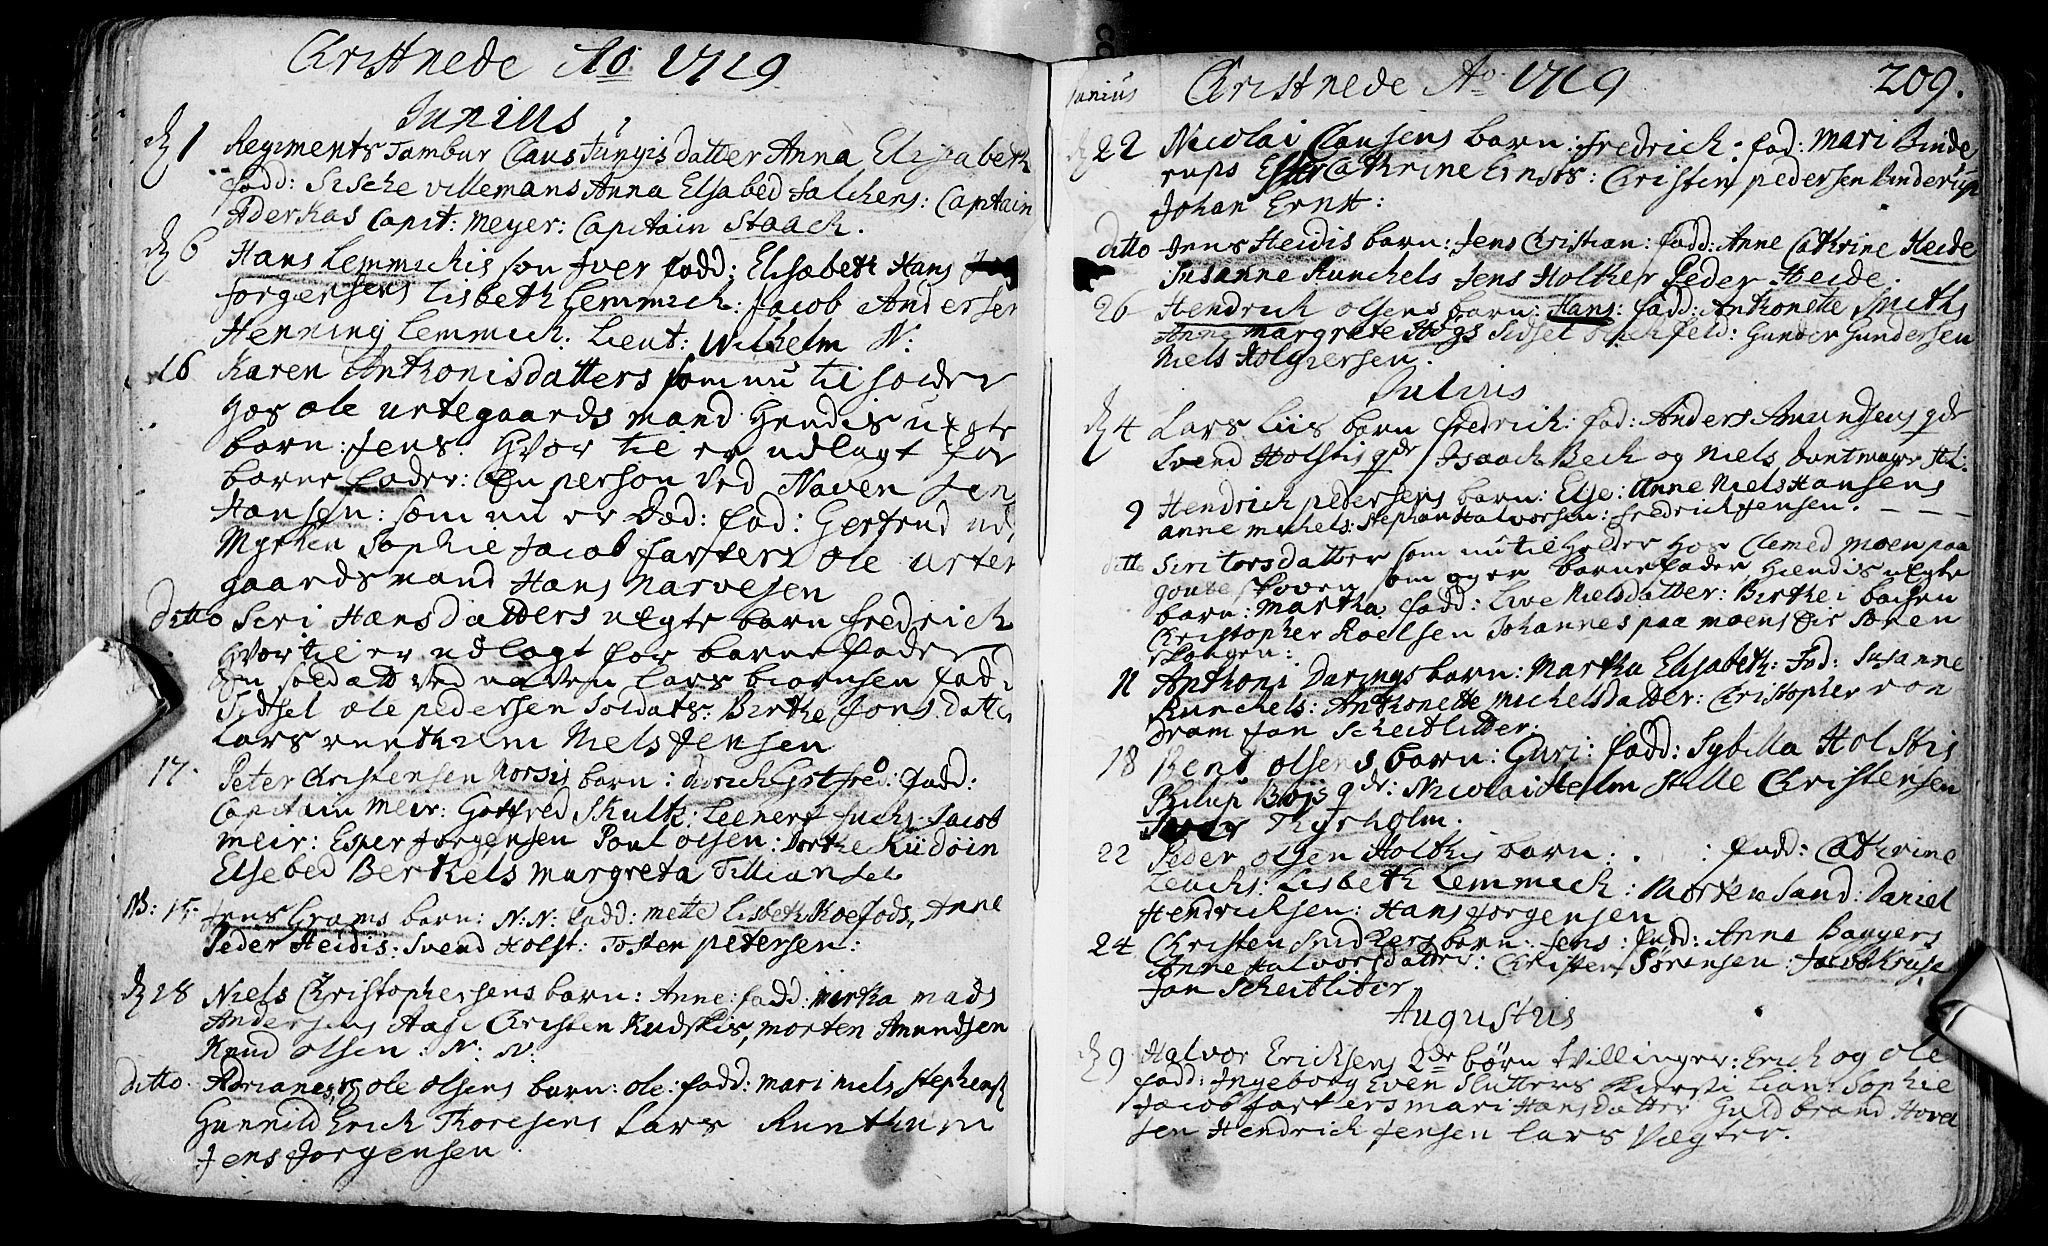 Christnede Ao 1719
Junius
D 1 Regiments Tambur Claus Jüngis datter Anna Elisabeth
fadd: Sische villemans Anna Elsabed Falchens: Capitain
Aderkas Capit: Meyer: Capitain Staack.
D 6 Hans Lemmichis søn Iver fadd: Elisabeth Hans
Jorgensens Lisbeth Lemmich: Jacob Andersen
Henning Lemmich: Lieut: Wilhelm N:
16 Karen Anthonisdatters som nu til holder
hos ole urtegaards mand hendis uegte
barn: Jens. hvor til er udlagt for
barne fader: En person ved Naven Jens
Hansen: som nu er død: fad: Gertrud
Myrhen Sophie Jacob farvers Ole urte
gaardsmand Hans Narvesen
Ditto Seri Hansdatters uegte barn fredrich
hvor til er udlagt for barne fader
En soldat ved naven Lars biørnsen fad:
Sidsel ole pedersen Soldats: Birthe Jonsdatter
Lars runthum Niels Jensen
17. Peter Christensen Norsis barn: fadd:
Capitain Meir: Gotfred Skult: Leenert fuchs Jacob
Meir: Esper Jørgensen Poul olsen: Dorthe
Elsebed Berthels Margreta
NB: 15. Jens Grams barn: N: N: fadd: Mette Lisbeth Koefods, Anne
Peder Heidis: Svend Holst: Tosten petersen:
D 18 Niels Christophersens barn: Anne: fadd: Mads
Andersens Aase Christen Rudskis, Morten Amundsen
Knud olsen: N: N:
ditto. ole olsens barn: ole: fadd: Mari Niels Stephensens
Gunnild Erich Thoresens Lars Runthum
Jens Jorgensen
Junius Christnede Ao 1719 209.
D 22 Nicolai Clausens barn: Fredrich: fad: Mari Binde
rups Cathrine Ernsts: Christen pedersen Binderup
Johan Ernst:
ditto Jens Heidis barn: Jens Christian: fadd: Anne Cathrine Heide
Susanne Runchels Jens Holther Peder Heide.
26 Hendrich olsens barn: Hans: fadd: Anthonette Smiths
Anne Margrete Sidsel Gunder Gundersen
Niels Holgersen.
Julius
D 4 Lars Liis barn fredrich: fad: Anders Amundsens qde
Svend Holstis qde Isaach Bech og Niels
9 Hendrich pedersens barn: Else: Anne Niels Hansens
anne michels: Stephan Halvorsen: fredrich Jensen. - - -
ditto Siri torsdatter som nu til holder hos Clemed Moen paa
skoven som og er barnefader, hendis uegte
barn: Martha fadd: Live Nielsdatter: Berthe
Christopher Roelsen Johannes paa moens Soren
skougen:
11 Anthoni Darings barn: Martha Elisabeth: fad: Susanne
Runchels: Anthonette Michelsdatter: Christopher von
Dram Jan Scheitlitter:
18 Bend olsens barn: Guri: fadd: Sybilla Holstis
Philup Bojs qde: Nicolai Helm Hille Christensen
Iver Thyrholm.
22 Peder olsen Holthis barn: . : fadd: Cathrine
Leuchs: Lisbeth Lemmich: Morten Sand: Daniel
Hendrichsen: Hans Jorgensen
24 Christen Snidkers barn: Jens: fadd: Anne Baggers
Anne Halvorsdatter: Christen Sørensen: Jacob Kruse
Jan Scheitliter
Augustus
D 9 Halvor Erichsens 2de børn tvillinger: Erich og ole
fadd: Ingeborg Even Slutters Kiersti Lians Sophie
Jacob farvers Mari Hansdatter Guldbrand Hovel
sen Hendrich Jensen Lars Vegter.